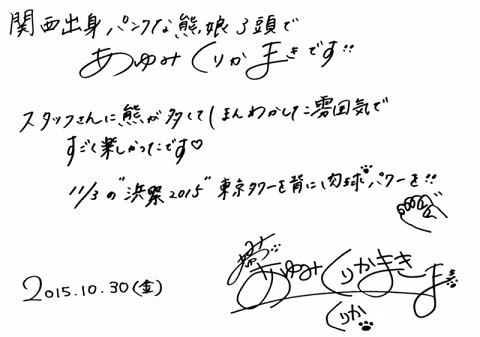 関西出身パンクな熊娘3頭で
あゆみくりかまきです!!
スタッフさんに熊が多くてしまんわかした雰囲気で
すごく楽しかったです♡
11/3の"浜祭2015"東京タワーを背に肉球パワーを!!
あゆみくりかまき
くりか
2015.10.30(金)